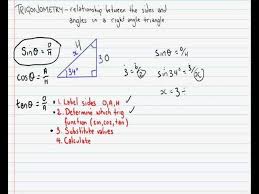 TRIGONOMETRY - relationship between the sides and
angles in a right angle triangle.
Sinθ = O/H
cosθ = A/H
tanθ = O/A
x
H
34°
3
O
A
Sinθ = O/H
sin34° = 3/x
x = 3 ÷
• 1. Label sides O, A, H ✓
• 2. Determine which trig
function (sin, cos, tan) ✓
• 3. Substitute values
4. Calculate